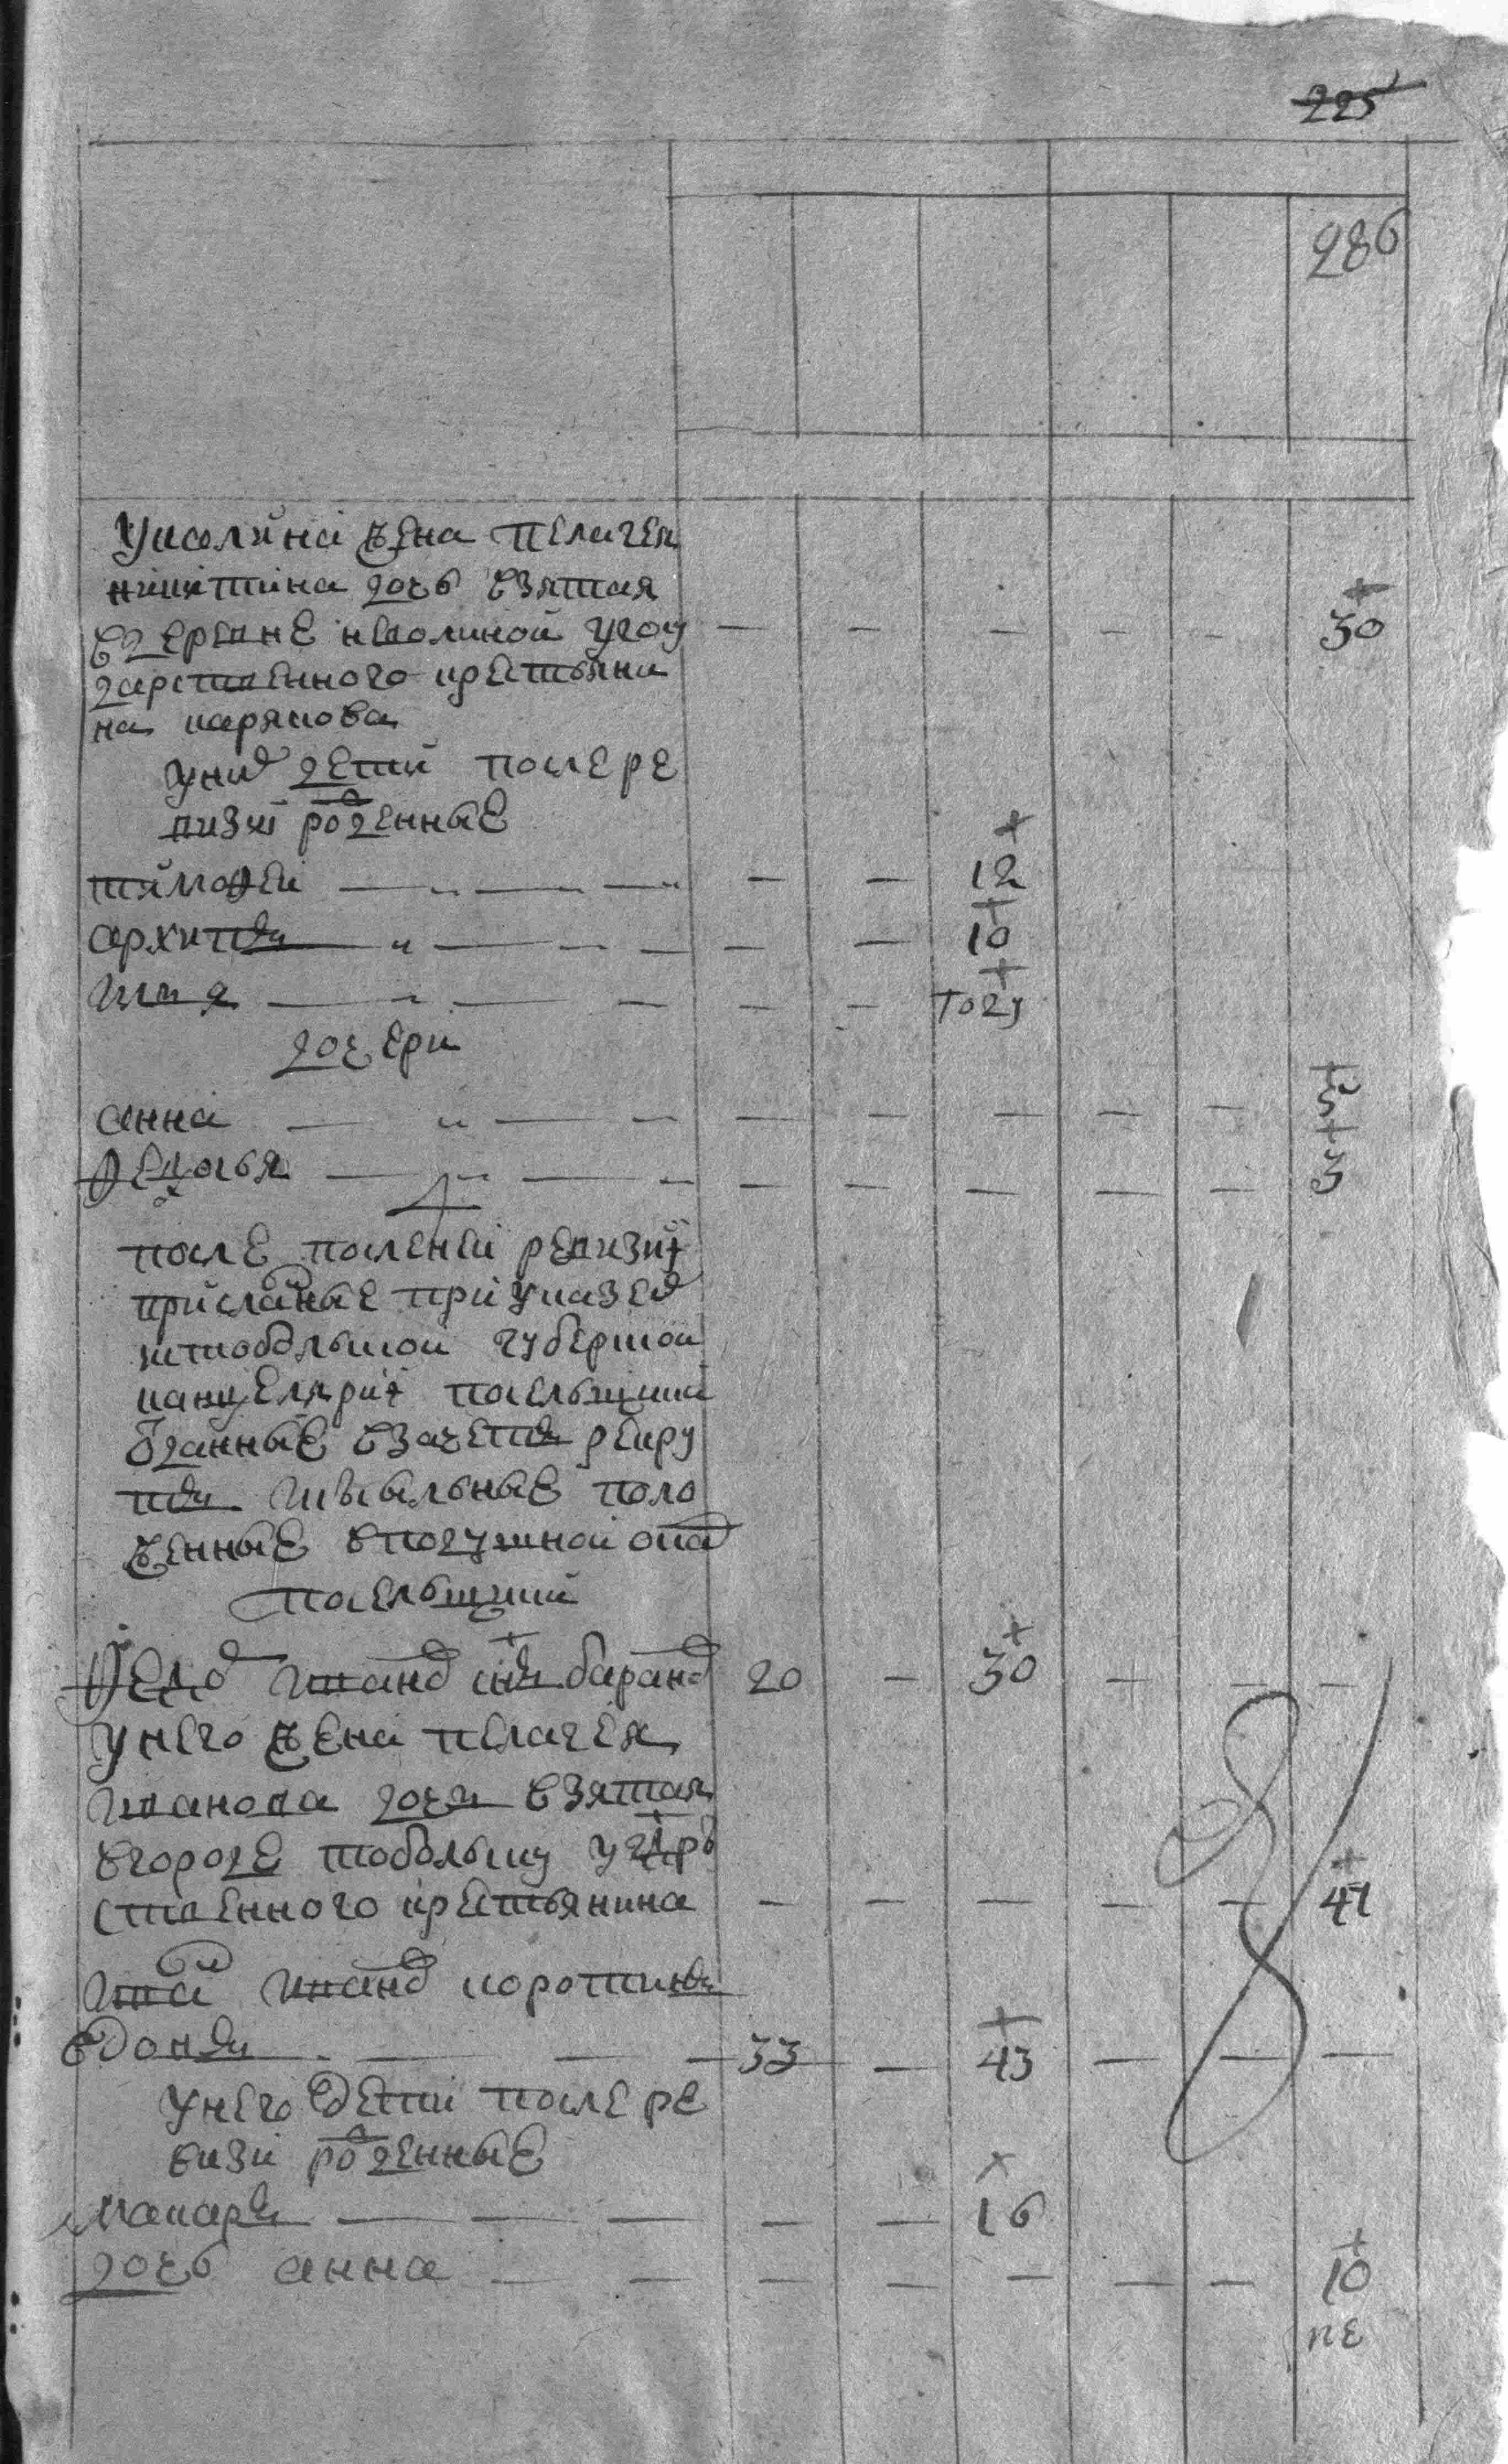 225
286
Уисолина жена пелагея
никитина дочь взятая
вдеревне неволиной угосу
дарственного крестьяни
на карякова — — — — — 30
уних дети после ре
визии рожденные
тимофеи — — — 12
архипъ — — — 10
илья — — — году
дочери
анна — — — — — 5
федосья — — — — — 3
после последней ревизиi
присланные при указех
истобольской губернской
канцелярии посельщики
отданные взачетъ рекру
тъ ссыльные поло
женные вподушной окла
посельщики
федор иванов снъ баранов 20 — 30 — — —
унего жена пелагея
иванова дочь взятая
вгороде тобольску угдр
ственного крестьянина — — — — — 41
иван иванов коротинъ
вдовъ — — — 33 — 43 — — —
унего дети после ре
визи рожденные
макаръ — — — — — 16
дочь анна — — — — — — — 10
пе